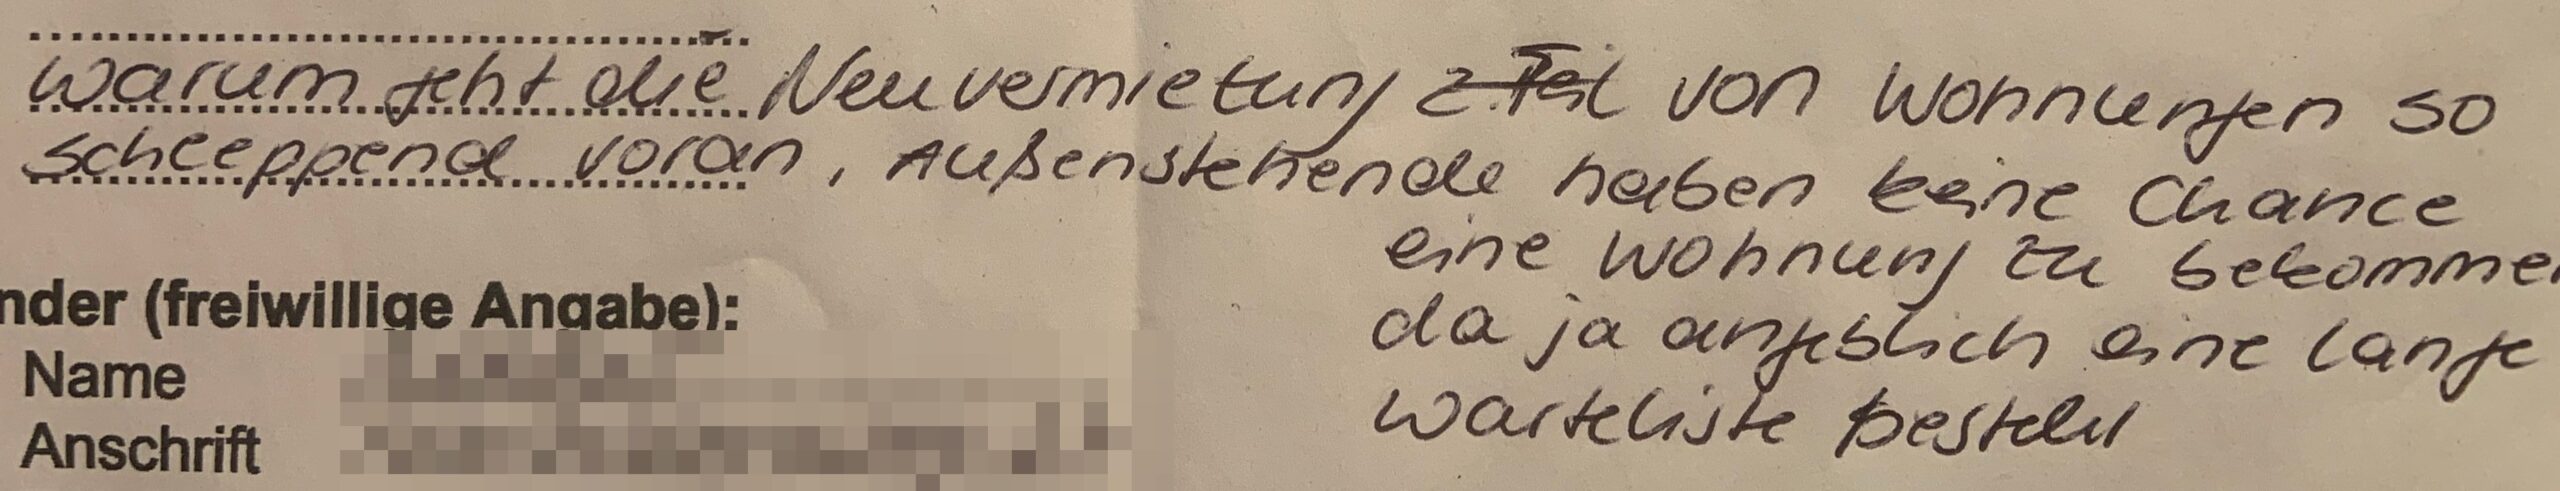 Warum geht die Neuvermietung z. Teil von Wohnungen so
schleppend voran, Außenstehende haben keine Chance
eine Wohnung zu bekommen
da ja angeblich eine lange
Warteliste besteht
nder (freiwillige Angabe):
Name
Anschrift